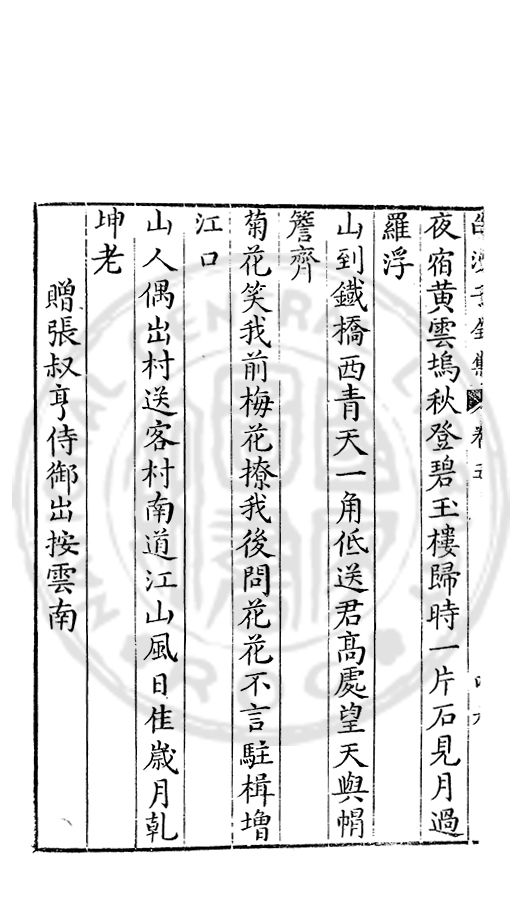 夜宿黄雲塢秋登碧玉樓歸時一片石見月過
羅浮
山到鐵橋西青天一角低送君髙處望天與帽
簷齊
菊花笑我前梅花撩我後問花花不言駐楫増
江口
山人偶出村送客村南道江山風日佳歳月乹
坤老
贈張叔亨侍御出按雲南